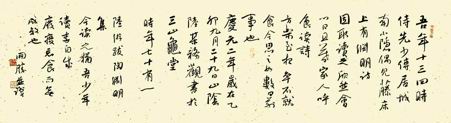 吾年十三四時
侍先少傅居城
南小隱偶見藤床
上有淵明詩
因取讀之欣然會
心日且暮家人呼
食讀詩
方樂至夜卒不就
食今思之如數日前
事也
慶元二年歲在乙
卯九月二十九日山陰
陸某務觀書於
三山龜堂
時年七十有一
陸游跋陶淵明
集
今讀之猶吾少年
讀書
廢寢忘食